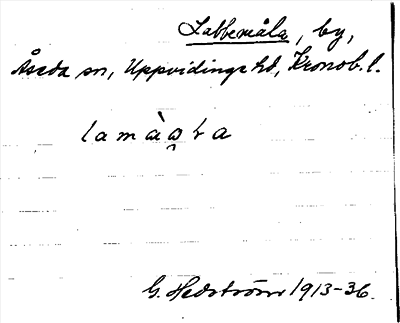 Labbemåla, by,
Åseda sn, Uppvidinge hd, Kronob. l.
G. Hedström 1913-36.